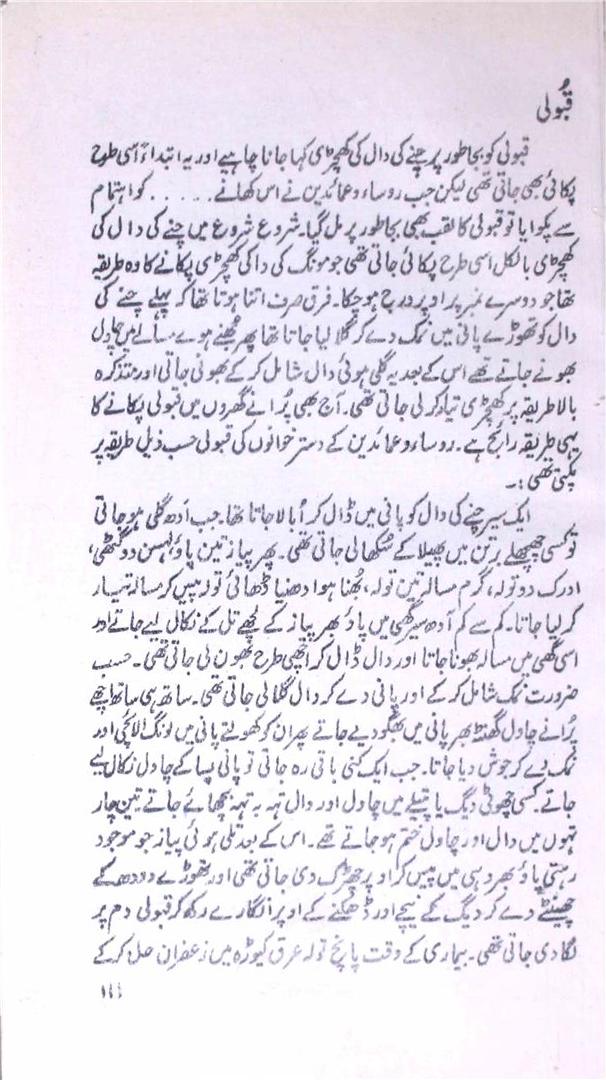 قبُولی
قبولی کو بجا طور پر چنے کی دال کی کھچڑی کہا جانا چاہیے اور یہ ابتداءً اسی طرح
پکائی بھی جاتی تھی لیکن جب روساء و عمائدین نے اس کھانے ..... کو اہتمام
سے پکوایا تو قبولی کا لقب بھی بجا طور پر مل گیا۔ شروع شروع میں چنے کی دال کی
کھچڑی بالکل اسی طرح پکائی جاتی تھی جو مونگ کی دا کی کھچڑی پکانے کا وہ طریقہ
تھا جو دوسرے نمبر پر اوپر درج ہو چکا۔ فرق صرف اتنا ہوتا تھا کہ پہلے چنے کی
دال کو تھوڑے پانی میں نمک دے کر گلا لیا جاتا تھا پھر بُھنے ہوے مسالے میں چاول
بھونے جاتے تھے اس کے بعد یہ گلی ہوئی دال شامل کر کے بھونی جاتی اور متذکرہ
بالا طریقہ پر کھچڑی تیار کر لی جاتی تھی۔ آج بھی پُرانے گھروں میں قبولی پکانے کا
یہی طریقہ رائج ہے۔ روساء و عمائدین کے دسترخوانوں کی قبولی حسب ذیل طریقہ پر
پکتی تھی:۔
ایک سیر چنے کی دال کو پانی میں ڈال کر اُبالا جاتا تھا۔ جب اَدھ گلی ہو جاتی
تو کسی چھچھلے برتن میں پھیلا کے سُکھا لی جاتی تھی۔ پھر پیاز تین پاؤ، لہسن دو گٹھی،
ادرک دو تولہ، گرم مسالہ تین تولہ، بُھنا ہوا دھنیا ڈھائی تولہ پیس کر مسالہ تیار
کر لیا جاتا۔ کم سے کم آدھ سیر گھی میں پاؤ بھر پیاز کے لچھے تل کے نکال لیے جاتے اور
اسی گھی میں مسالہ بھونا جاتا اور دال ڈال کر اچھی طرح بھون لی جاتی تھی۔ حسب
ضرورت نمک شامل کر کے اور پانی دے کر دال گلا لی جاتی تھی۔ ساتھ ہی ساتھ اچھے
پُرانے چاول گھنٹہ بھر پانی میں بھگو دیے جاتے پھر ان کو کھولتے پانی میں لونگ الائچی اور
نمک دے کر جوش دیا جاتا۔ جب ایک کنی باقی رہ جاتی تو پانی پسا کے چاول نکال لیے
جاتے۔ کسی چھوٹی دیگ یا پتیلے میں چاول اور دال تہہ بہ تہہ بچھائے جاتے تین چار
تہوں میں دال اور چاول ختم ہو جاتے تھے۔ اس کے بعد تلی ہوئی پیاز جو موجود
رہتی پاؤ بھر دہی میں پیس کر اوپر چھڑک دی جاتی تھی اور تھوڑے دودھ کے
چھینٹے دے کر دیگ کے نیچے اور ڈھکنے کے اوپر انگارے رکھ کر قبولی دم پر
لگا دی جاتی تھی۔ تیاری کے وقت پانچ تولہ عرق کیوڑہ میں زعفران حل کر کے
۱۱۱